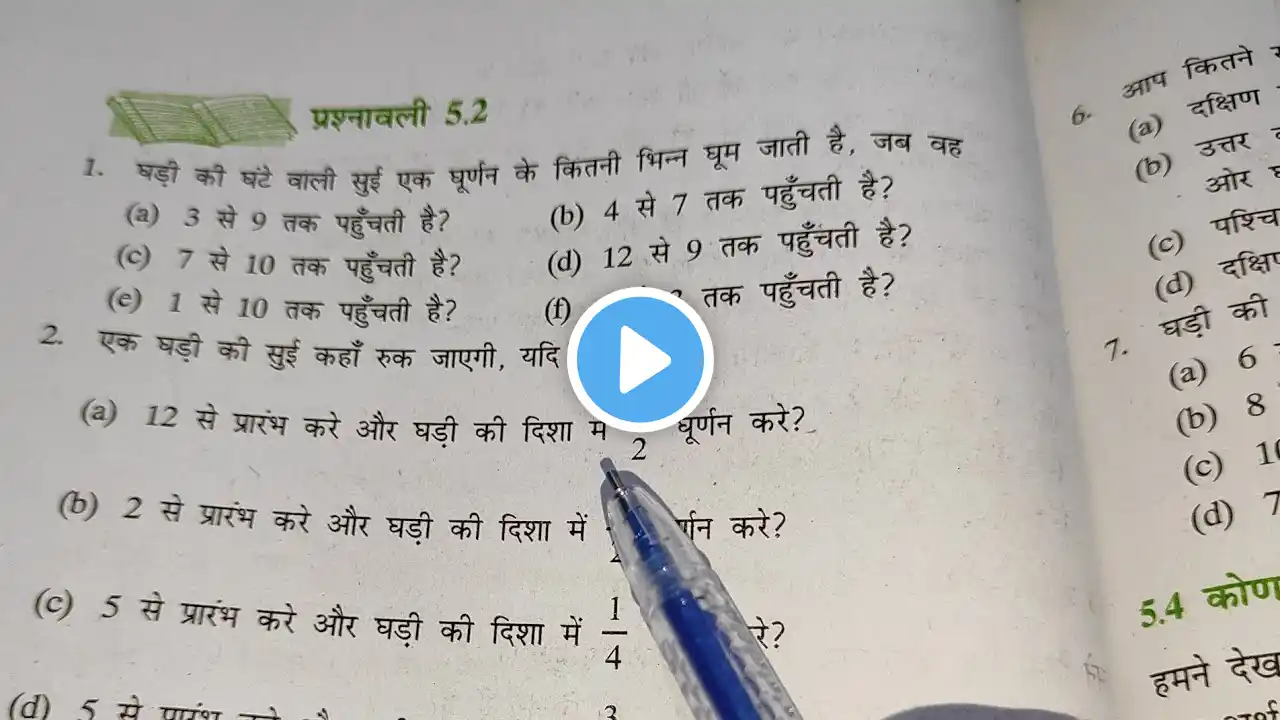 प्रश्नावली 5.2
1. घड़ी की घंटे वाली सुई एक घूर्णन के कितनी भिन्न घूम जाती है, जब वह
(a) 3 से 9 तक पहुँचती है? (b) 4 से 7 तक पहुँचती है?
(c) 7 से 10 तक पहुँचती है? (d) 12 से 9 तक पहुँचती है?
(e) 1 से 10 तक पहुँचती है? (f) तक पहुँचती है?
2. एक घड़ी की सुई कहाँ रुक जाएगी, यदि
(a) 12 से प्रारंभ करे और घड़ी की दिशा में 2 घूर्णन करे?
(b) 2 से प्रारंभ करे और घड़ी की दिशा में करे?
(c) 5 से प्रारंभ करे और घड़ी की दिशा में 1/4
(d) 5 से प्रारंभ 3
6. आप कितने
(a) दक्षिण
(b) उत्तर
ओर
(c)
(d)
7. घड़ी की
(a) 6
(b) 8
(c)
(d) 7
5.4
हमने